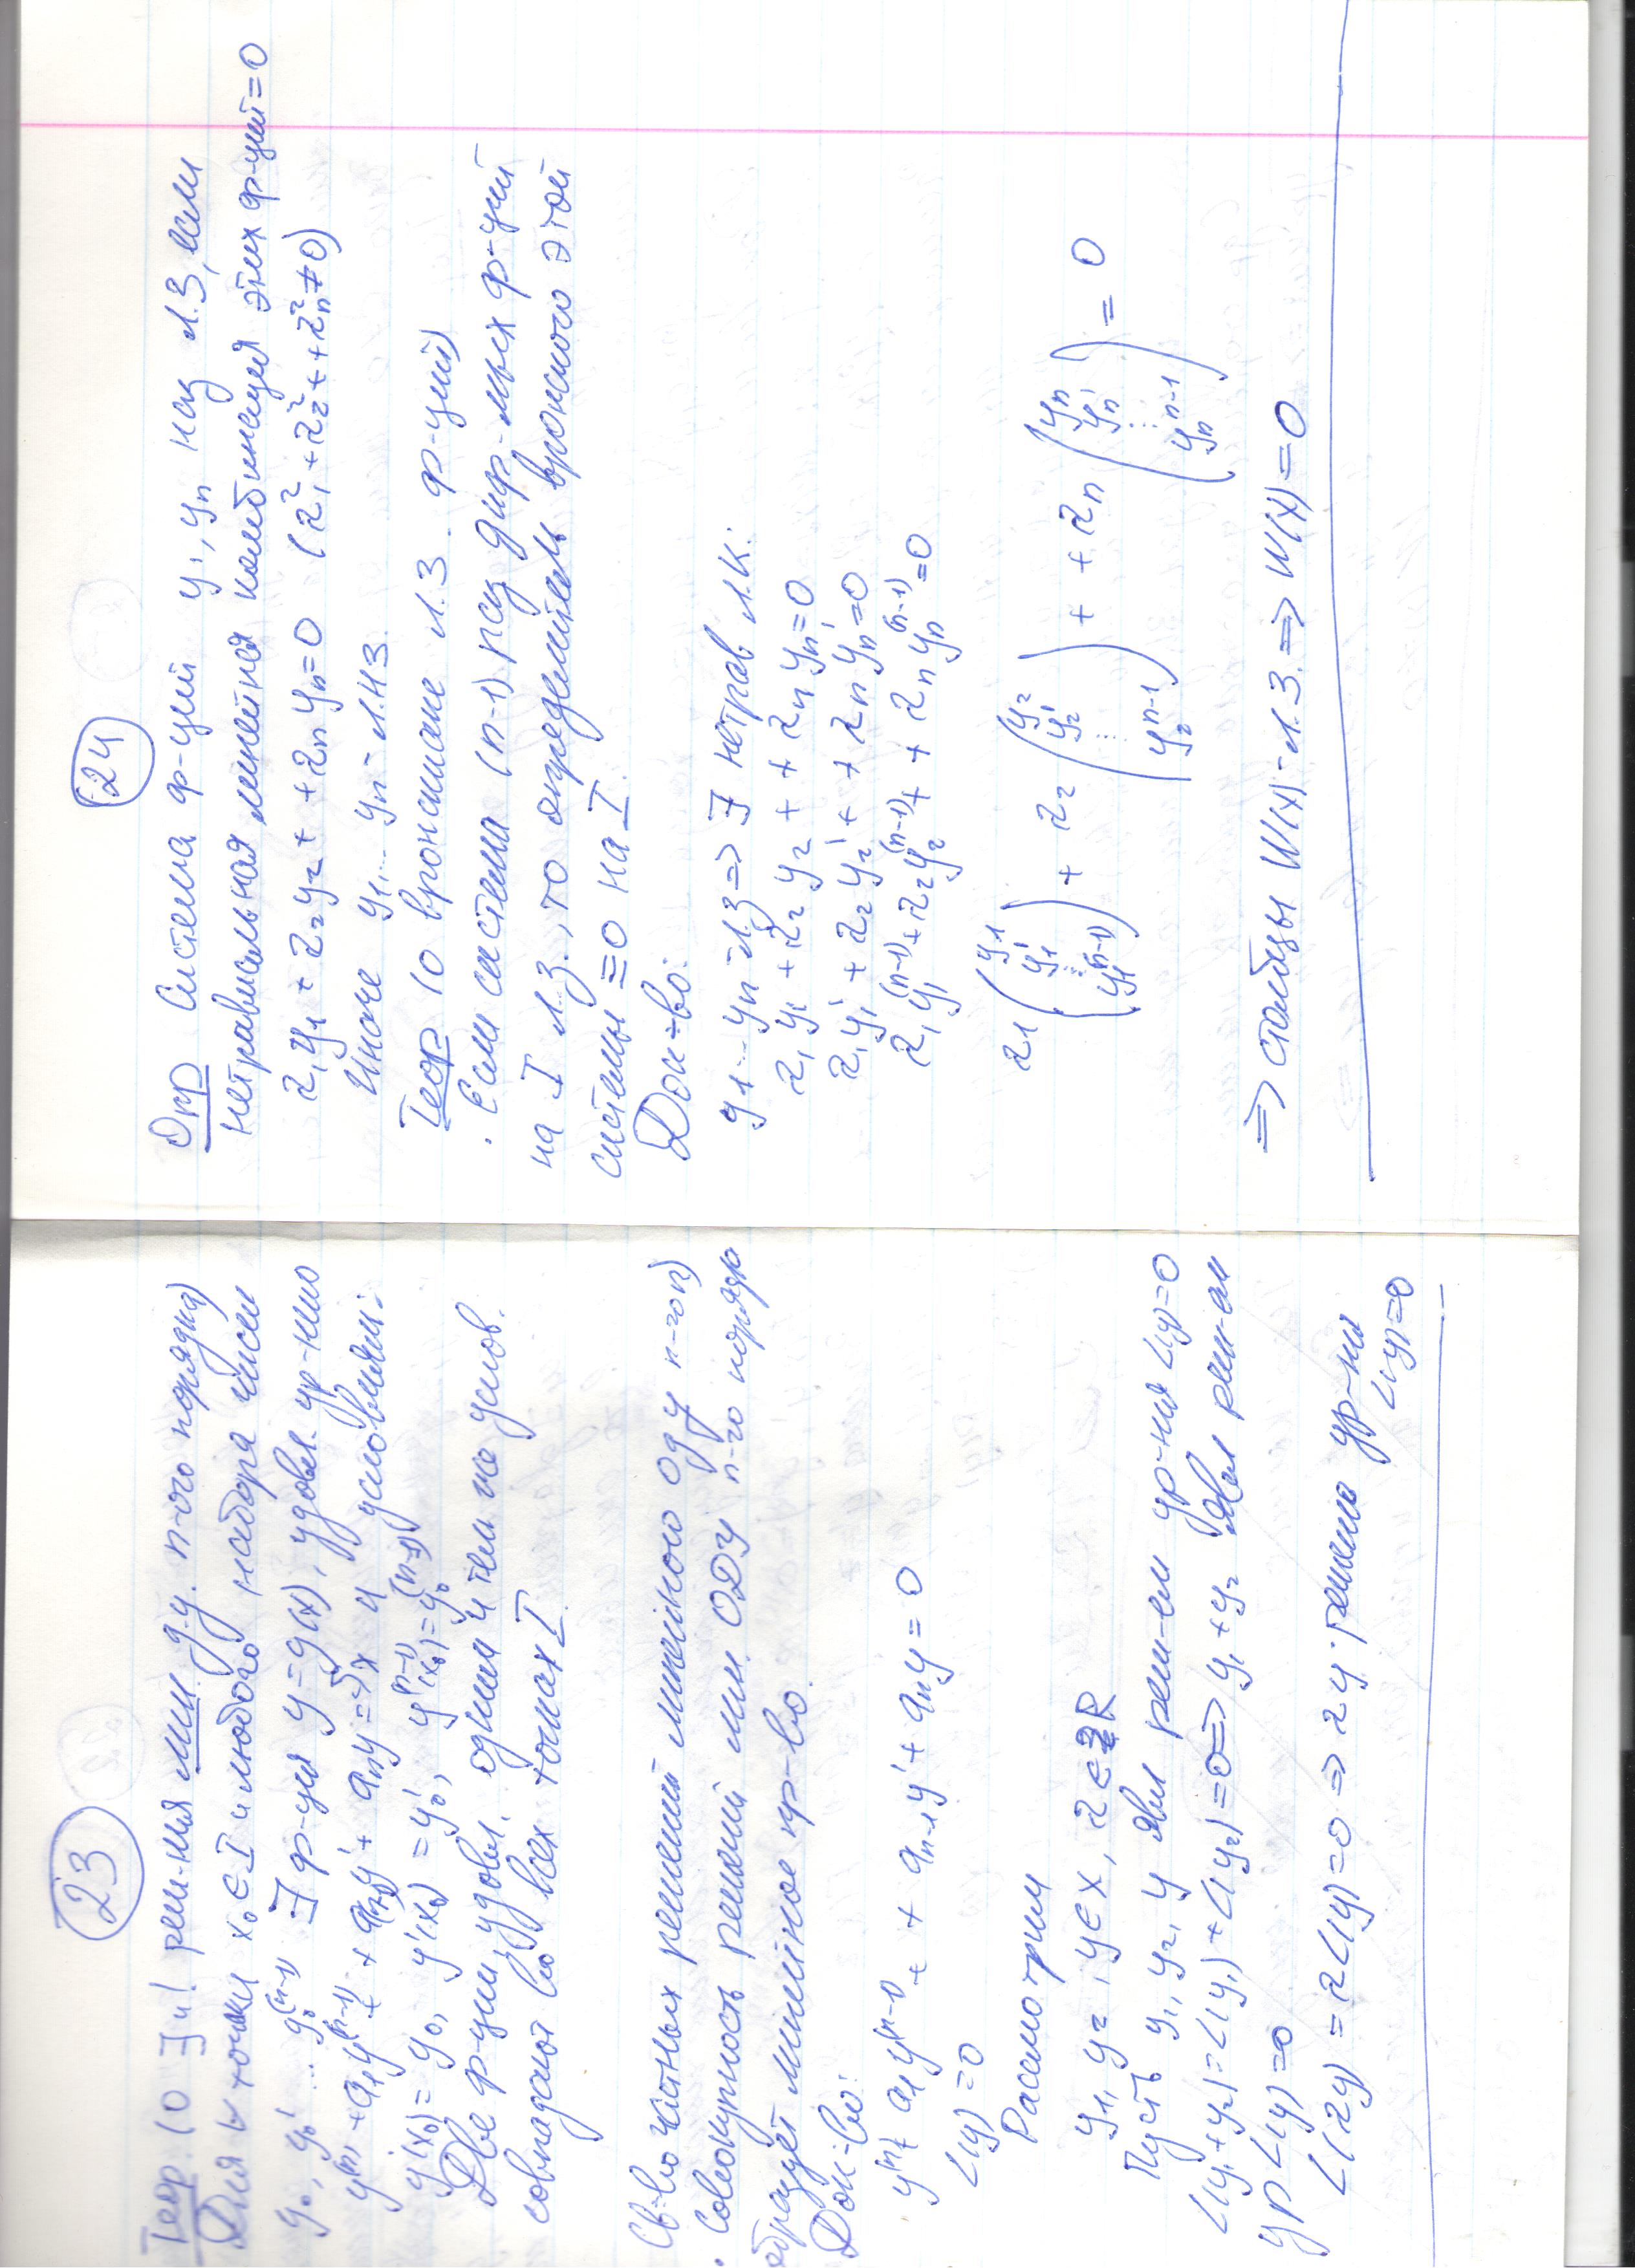 23
Теор. (о ∃ и! реш-ния лин. д.у. n-ого порядка)
Для ∀ точки x₀∈I и любого набора чисел
y₀, y₀' ... y₀⁽ⁿ⁻¹⁾ ∃ ф-ция y=y(x), удовл. ур-нию
y⁽ⁿ⁾+a₁y⁽ⁿ⁻¹⁾+ +a₍ₙ₋₁₎y'+ aₙy= и условиям:
y(x₀)=y₀, y'(x₀)=y₀', y⁽ⁿ⁻¹⁾(x₀)=y₀⁽ⁿ⁻¹⁾
Две ф-ции, удовл. одним и тем же услов.
совпадают во всех точках I.
Св-во частных решений линейного ОДУ n-го п)
· Совокупность решений лин. ОДУ n-го порядка
образует линейное пр-во.
Док-во:
yⁿ+ a₁y⁽ⁿ⁻¹⁾+ + aₙ₋₁y'+ aₙy=0
L(y)=0
Рассмотрим
y₁, y₂, y∈X, λ∈R
Пусть y₁, y₂, y явл реш-ем ур-ния L(y)=0
L(y₁+y₂)=L(y₁)+L(y₂)=0=> y₁+y₂ явл реш-ем
ур L(y)=0
L(λy)=λL(y)=0 => λy · решение ур-ния
L(y)=0
24
Опр Система ф-ций y₁, yₙ наз л.з, если
нетривиальная линейная комбинация этих ф-ций=0
λ₁y₁+λ₂y₂+ +λₙyₙ=0 (λ₁²+λ₂²+ +λₙ²≠0)
Иначе y₁... yₙ- л.нз.
Теор (о вронскиане л.з. ф-ций)
· Если система (n-1) раз диф-мых ф-ций
на I л.з., то определитель вронского этой
системы ≡0 на I.
Док-во:
y₁... yₙ-л.з => ∃ нетрив л.к:
λ₁y₁+λ₂y₂+ +λₙyₙ=0
λ₁y₁'+λ₂y₂'+ +λₙyₙ'=0
λ₁y₁⁽ⁿ⁻¹⁾+λ₂y₂⁽ⁿ⁻¹⁾+ +λₙyₙ⁽ⁿ⁻¹⁾=0
λ₁(y₁ y₁' ⋮ y₁⁽ⁿ⁻¹⁾) + λ₂(y₂ y₂' ⋮ y₂ⁿ⁻¹) + + λₙ(yₙ yₙ' ⋮ yₙⁿ⁻¹) = 0
=> столбцы W(x)-л.з.=> W(x)=0